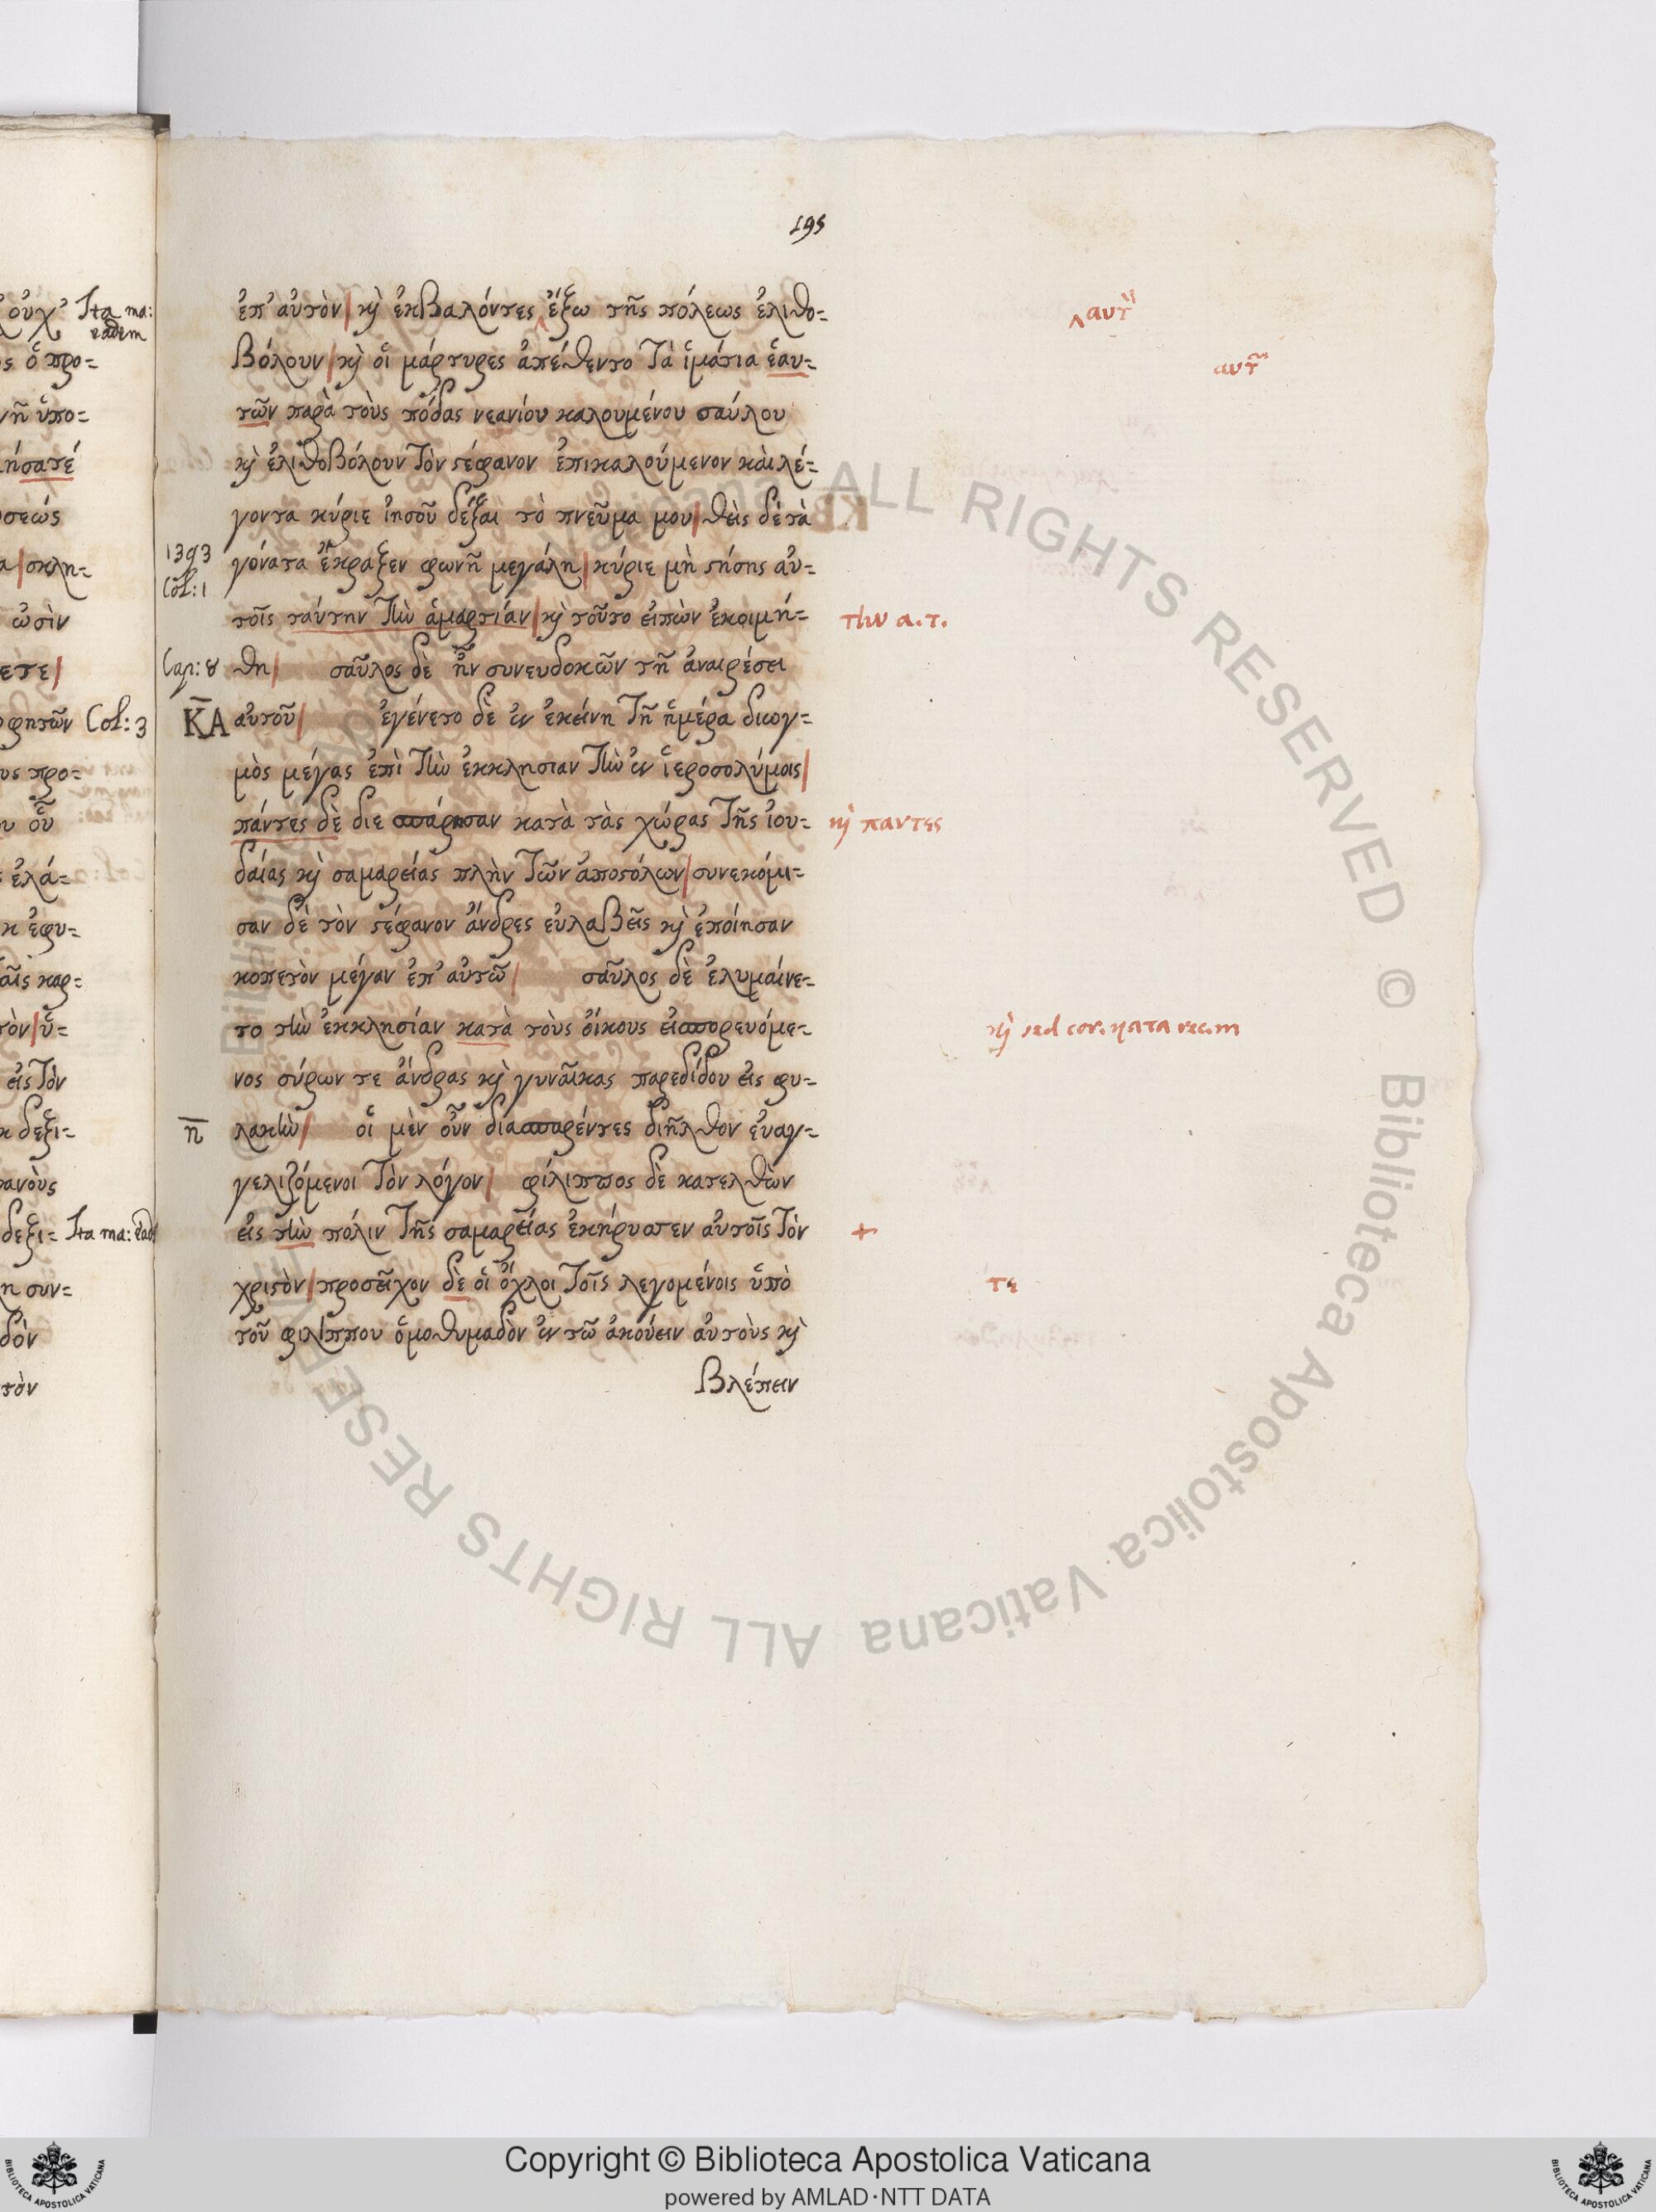 195
ἐπ' αὐτὸν| κὶ ἐκβαλόντες ‸ ἔξω τῆς πόλεως ἐλιθο= ‸αυτ
βόλουν| κὶ οἱ μάρτυρες ἀπέθεντο τὰ ἱμάτια ἑαυ= αυτ
τῶν παρὰ τοὺς πόδας νεανίου καλουμένου σαύλου
κὶ ἐλιθοβόλουν τὸν ϛέφανον ἐπικαλούμενον καὶ λέ=
γοντα κύριε ἰησοῦ δέξαι τὸ πνεῦμα μου| θεὶς δὲ τὰ
1393 γόνατα ἔκραξεν φωνῆ μεγάλη| κύριε μὴ ϛήσης αὐ=
Col:1
τοῖς ταύτην τὴν ἁμαρτίαν| κὶ τοῦτο εἰπὼν ἐκοιμή= την α.τ.
Cap:8 θη| σαῦλος δὲ ἦν συνευδοκῶν τῆ ἀναιρέσει
ΚΑ αὐτοῦ| ἐγένετο δὲ ἐν ἐκείνη τῆ ἡμέρα διωγ=
μὸς μέγας ἐπὶ τὴν ἐκκλησιαν τὴν ἐν ἱεροσολύμοις|
πάντες δὲ διεσπάρησαν κατὰ τὰς χώρας τῆς ἰου= κὶ παντες
δαίας κὶ σαμαρείας πλὴν τῶν ἀποϛόλων| συνεκόμι=
σαν δὲ τὸν ϛέφανον ἄνδρες εὐλαβεῖς κὶ ἐποίησαν
κοπετὸν μέγαν ἐπ' αὐτῶ| σαῦλος δὲ ἐλυμαίνε=
το τὴν ἐκκλησίαν κατὰ τοὺς οἴκους εἰσπορευόμε= κὶ sed cor. κατα rec.m
νος σύρων τε ἄνδρας κὶ γυναῖκας παρεδίδου εἰς φυ=
η λακὴν| οἱ μὲν οὖν διασπαρέντες διῆλθον εὐαγ=
γελιζόμενοι τὸν λόγον| φίλιππος δὲ κατελθὼν
εἰς τὴν πόλιν τῆς σαμαρείας ἐκήρυσσεν αὐτοῖς τὸν +
χριϛὸν| προσεῖχον δὲ οἱ ὄχλοι τοῖς λεγομένοις ὑπὸ τε
τοῦ φιλίππου ὁμοθυμαδὸν ἐν τῶ ἀκούειν αὐτοὺς κὶ
βλέπειν
οὐχ' Ita ma:
eadem
ὁ προ=
ὑπο=
σεώς
σκλη=
ὠσὶν
ετε|
φητῶν Col:3
προ=
οὗ
ἐλά=
ἐφυ=
καρ=
τὸν| ὑ=
εἰς τὸν
δεξι=
δεξι= Ita ma: ead
συν=
δὸν
τὸν
Copyright © Biblioteca Apostolica Vaticana
powered by AMLAD·NTT DATA
ALL RIGHTS RESERVED © Biblioteca Apostolica Vaticana
ALL RIGHTS RESERVED
BIBLIOTECA APOSTOLICA VATICANA
BIBLIOTECA APOSTOLICA VATICANA